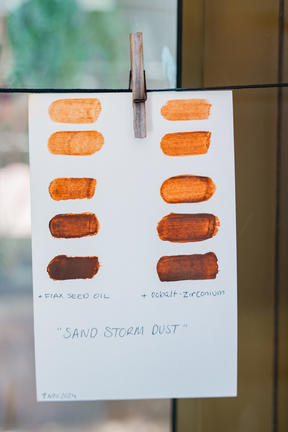 + FLAX SEED OIL + cobalt-zirconium
"SAND STORM DUST"
9 NOV 2024